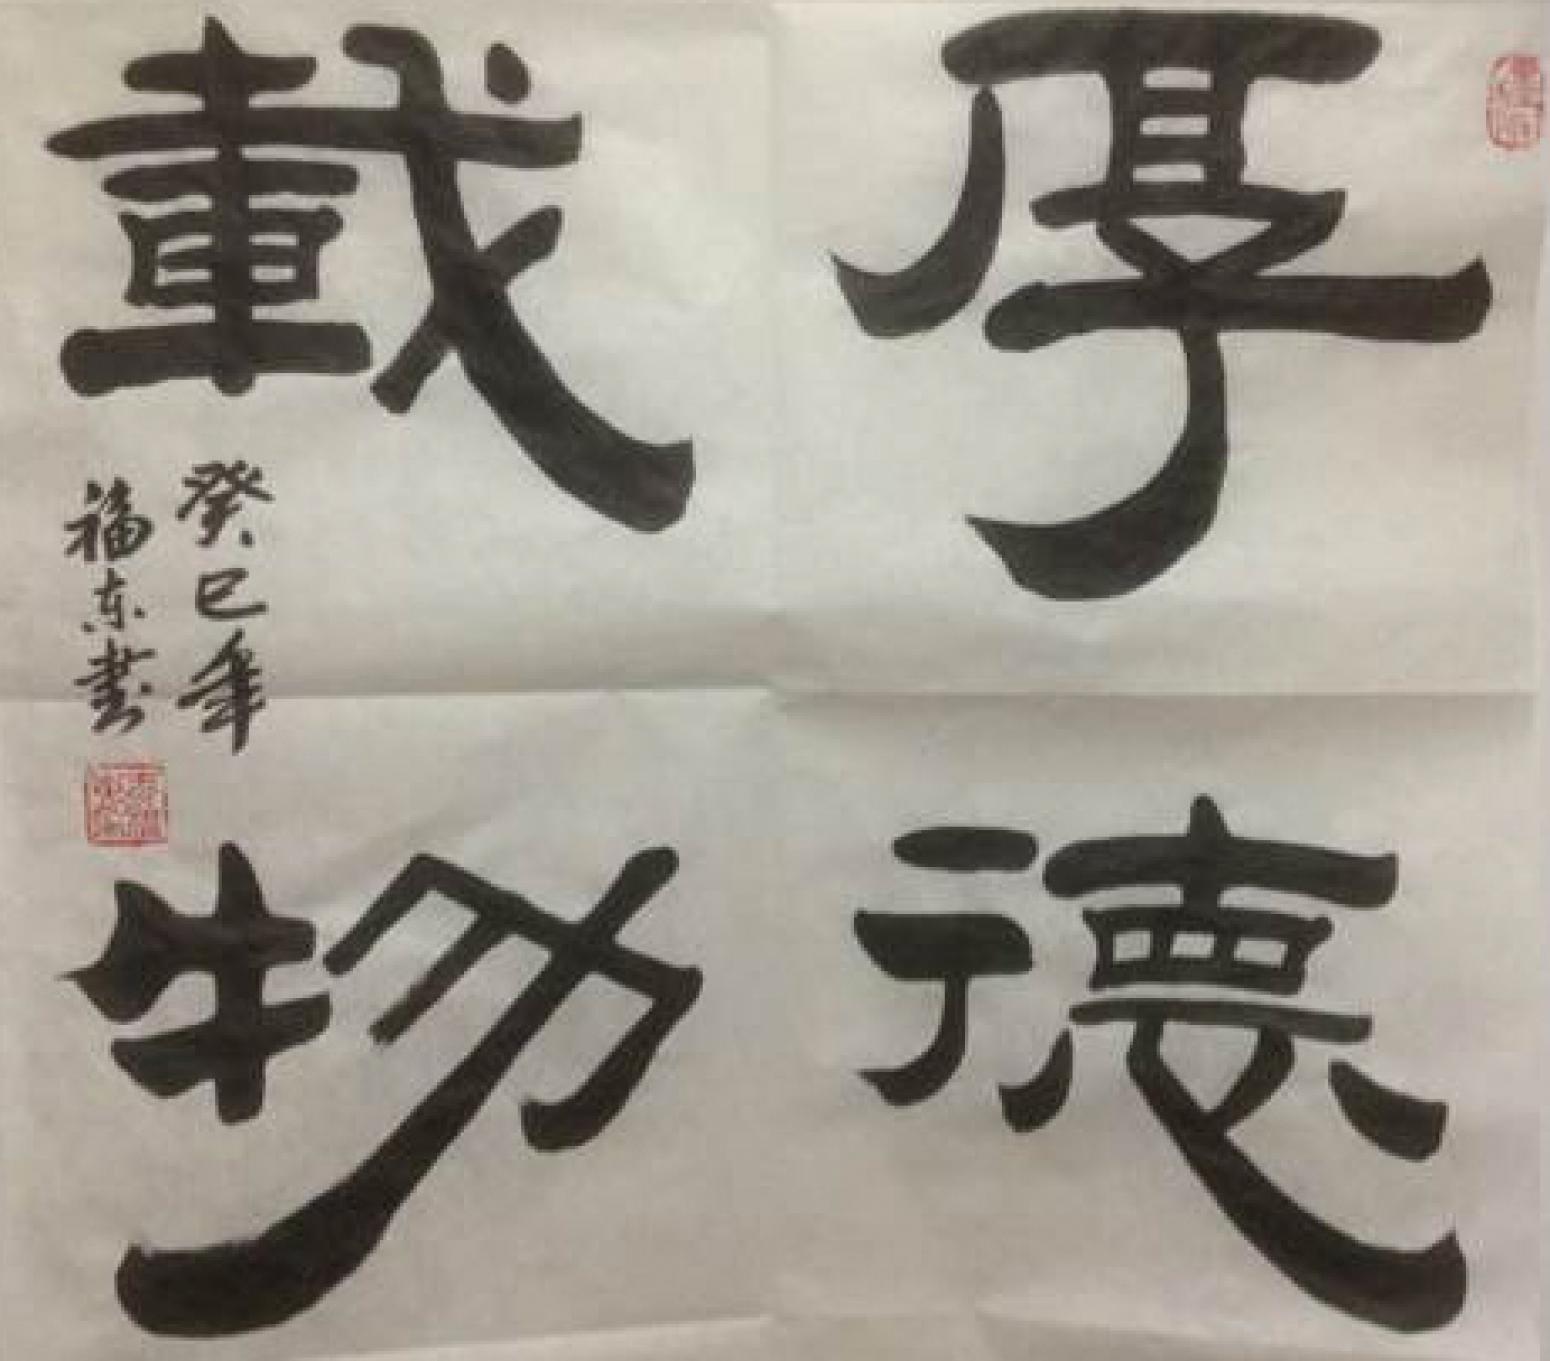 厚德
載物
癸巳年
福东書